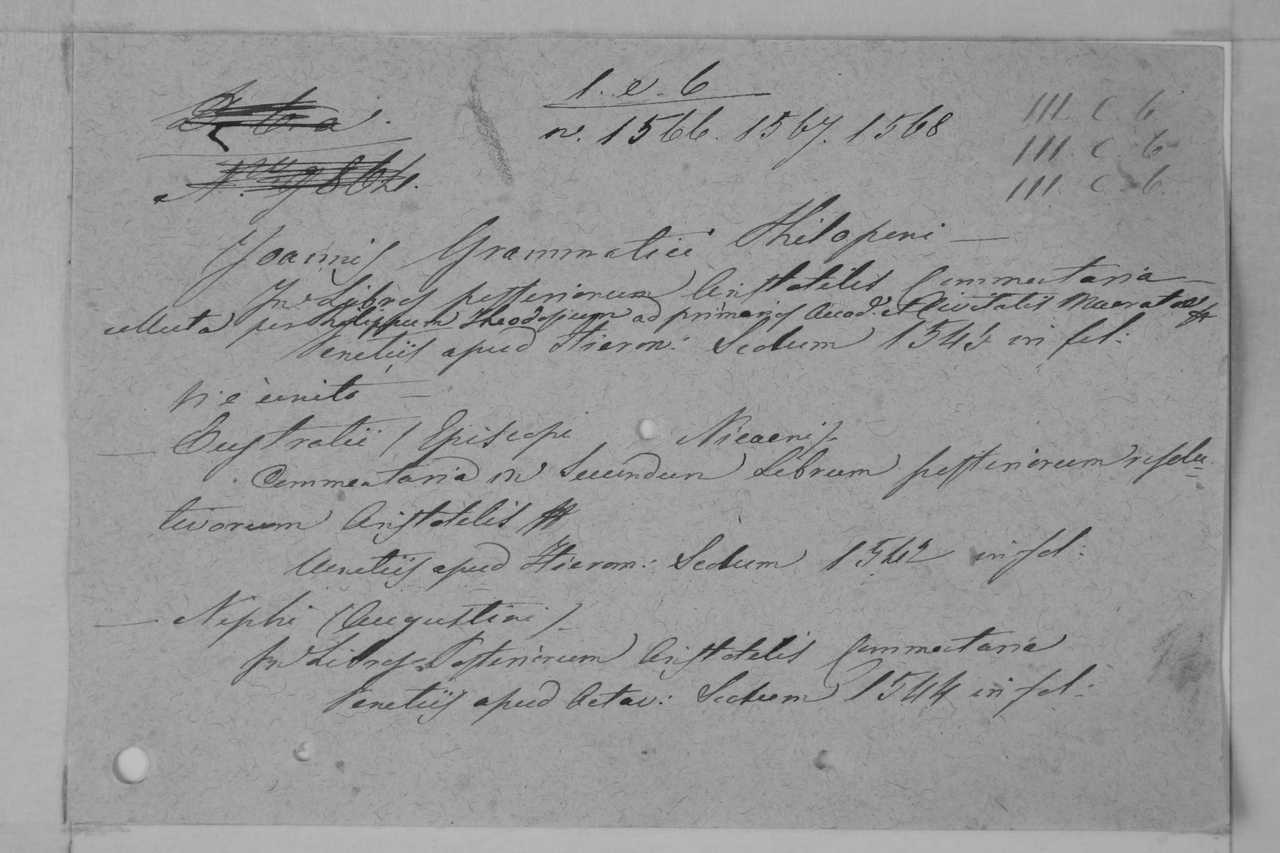 1. e. 6
n. 1566. 1567. 1568
III. C. 6
III. C. 6
III. C. 6.
Joannis Grammatici Philoponi —
In Libros posteriorum Aristotelis Commentaria
per Philippum Theodosium ad primarios Civitatis
Venetiis apud Hieron: Scotum 1545 in fol:
vi è unito —
— Eustratii / Episcopi Nicaenis
Commentaria in Secundum Librum posteriorum resolu-
tivorum Aristotelis
Venetiis apud Hierom: Scotum 1542 in fol:
— Niphi (Augustini)
In Libros Posteriorum Aristotelis Commentaria
Venetiis apud Octav: Scotum 1544 in fol: